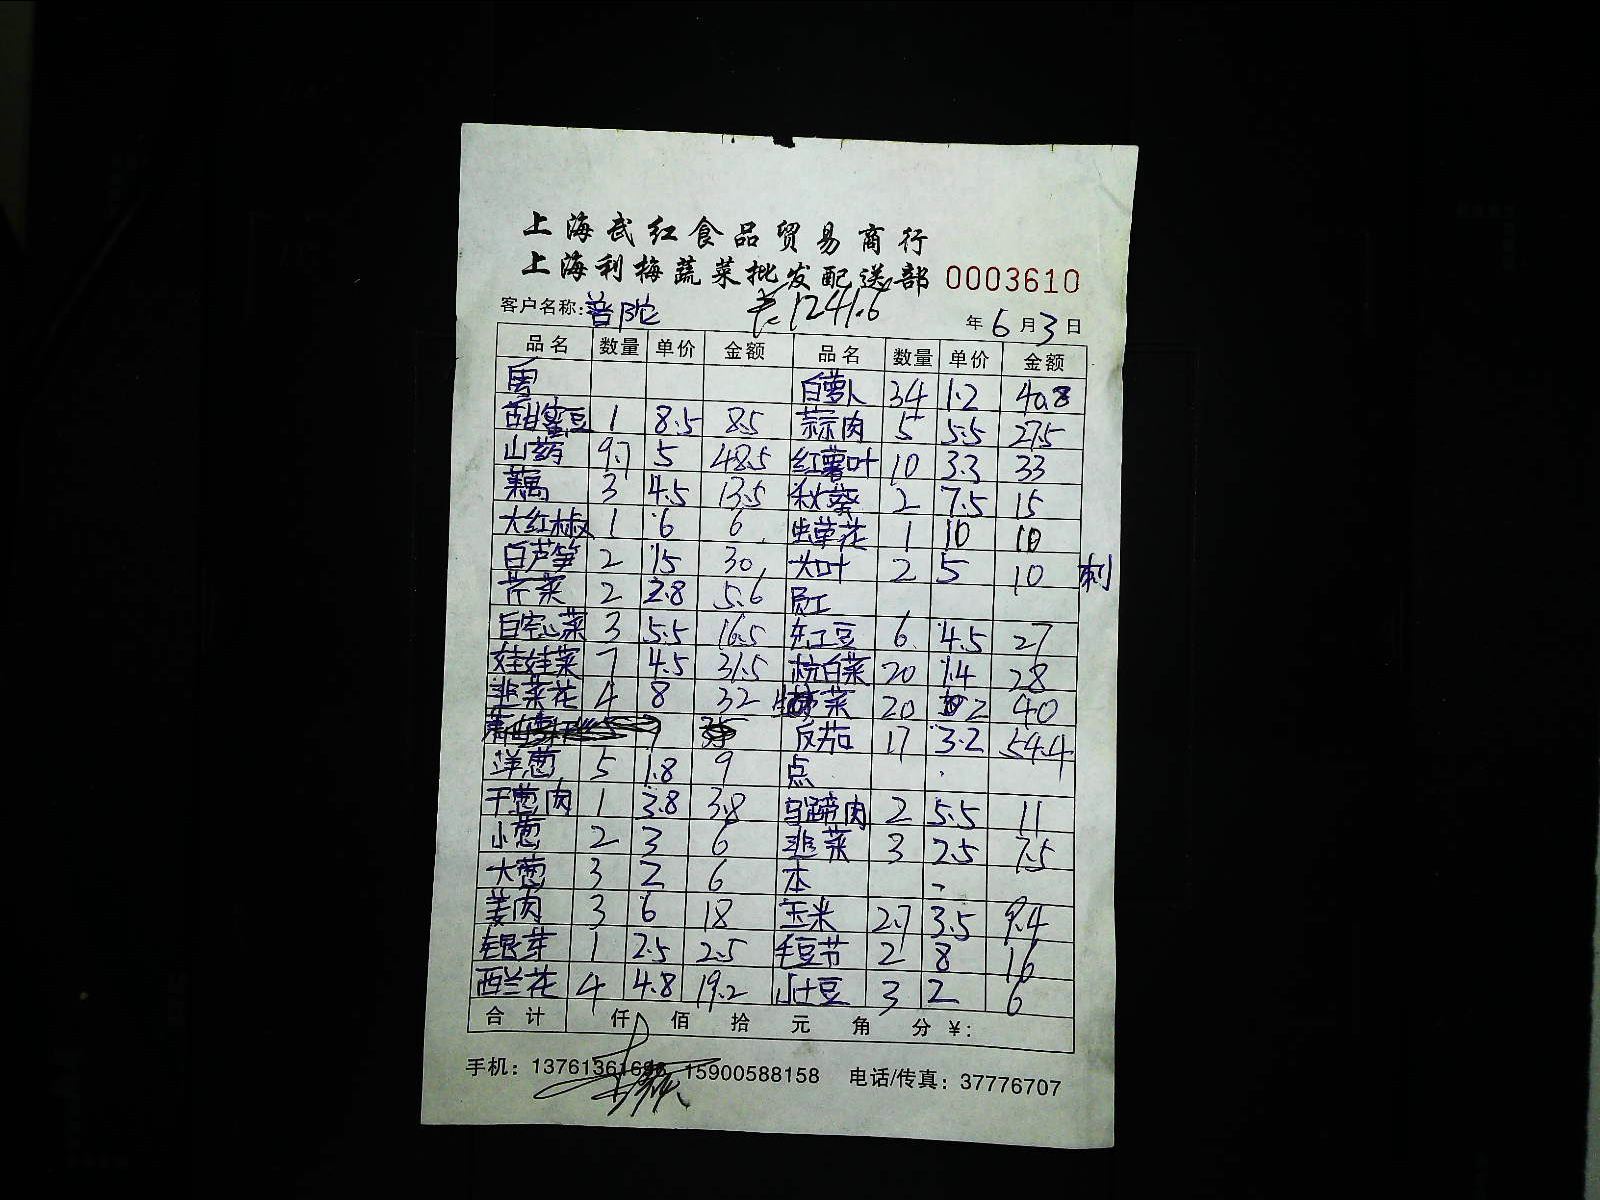 上海武红食品贸易商行
上海利梅蔬菜批发配送部 0003610
客户名称:普陀 1241.6 年6月3日
品名 数量 单价 金额 品名 数量 单价 金额
白萝卜 34 1.2 40.8
甜蜜豆 1 8.5 8.5 蒜肉 5 5.5 27.5
山药 9.7 5 48.5 红薯叶 10 3.3 33
藕 3 4.5 13.5 秋葵 2 7.5 15
大红椒 1 6 6 虫草花 1 10 10
白芦笋 2 15 30 大叶 2 5 10 刺
芹菜 2 2.8 5.6 员工
白空心菜 3 5.5 16.5 豇豆 6 4.5 27
娃娃菜 7 4.5 31.5 杭白菜 20 1.4 28
韭菜花 4 8 32 生菜 20 2 40
7 35 反茄 17 3.2 54.4
洋葱 5 1.8 9 点
干葱肉 1 3.8 3.8 马蹄肉 2 5.5 11
小葱 2 3 6 韭菜 3 2.5 7.5
大葱 3 2 6 本
姜肉 3 6 18 玉米 2.7 3.5 9.4
银芽 1 2.5 2.5 毛豆节 2 8 16
西兰花 4 4.8 19.2 小土豆 3 2 6
合计 仟 佰 拾 元 角 分 ¥:
手机: 15900588158 电话/传真: 37776707